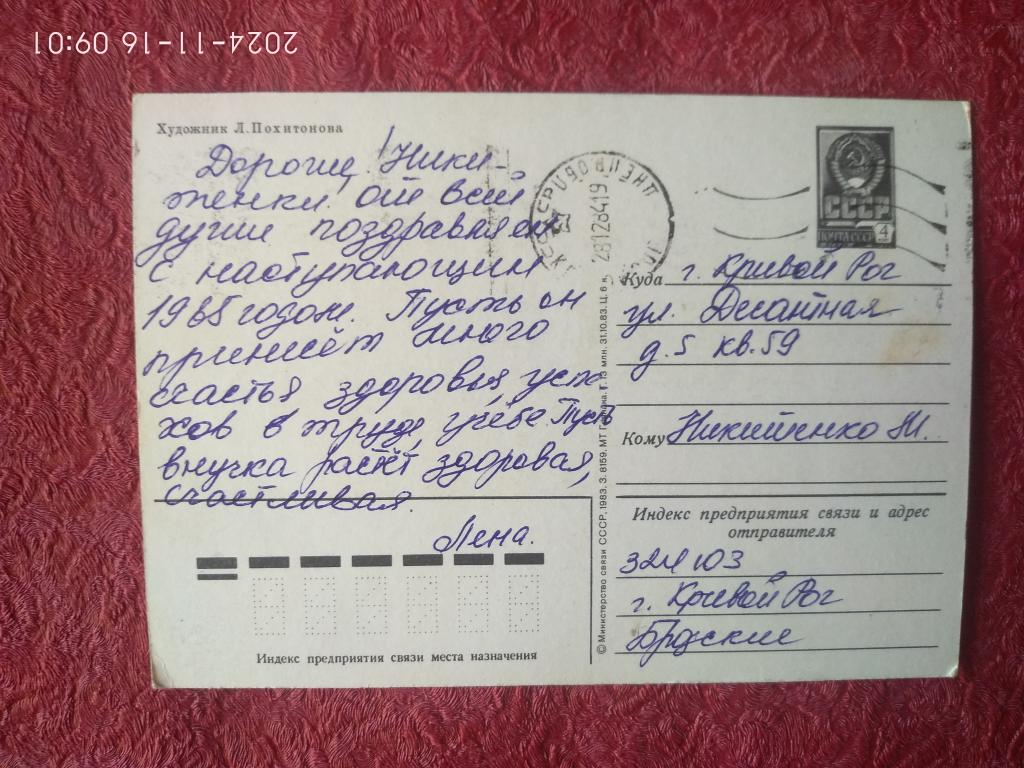 2024-11-16 09:01
Художник Л.Похитонова
Дорогие Ники-
тенки от всей
души поздравляем
с наступающим
1985 годом. Пусть он
принесёт много
счастья здоровья, успе
хов в труде, учёбе. Пусть
внучка растёт здоровая,
счастливая.
Лена.
Индекс предприятия связи места назначения
© Министерство связи СССР, 1983. З. 8159. МТ Т. 13 млн. 31.10.83. Ц. 6 к.
28128419
СССР
ПОЧТА СССР 4
Куда г. Кривой Рог
ул. Десантная
д. 5 кв. 59
Кому Никитенко М.
Индекс предприятия связи и адрес
отправителя
324103
г. Кривой Рог
Бродские